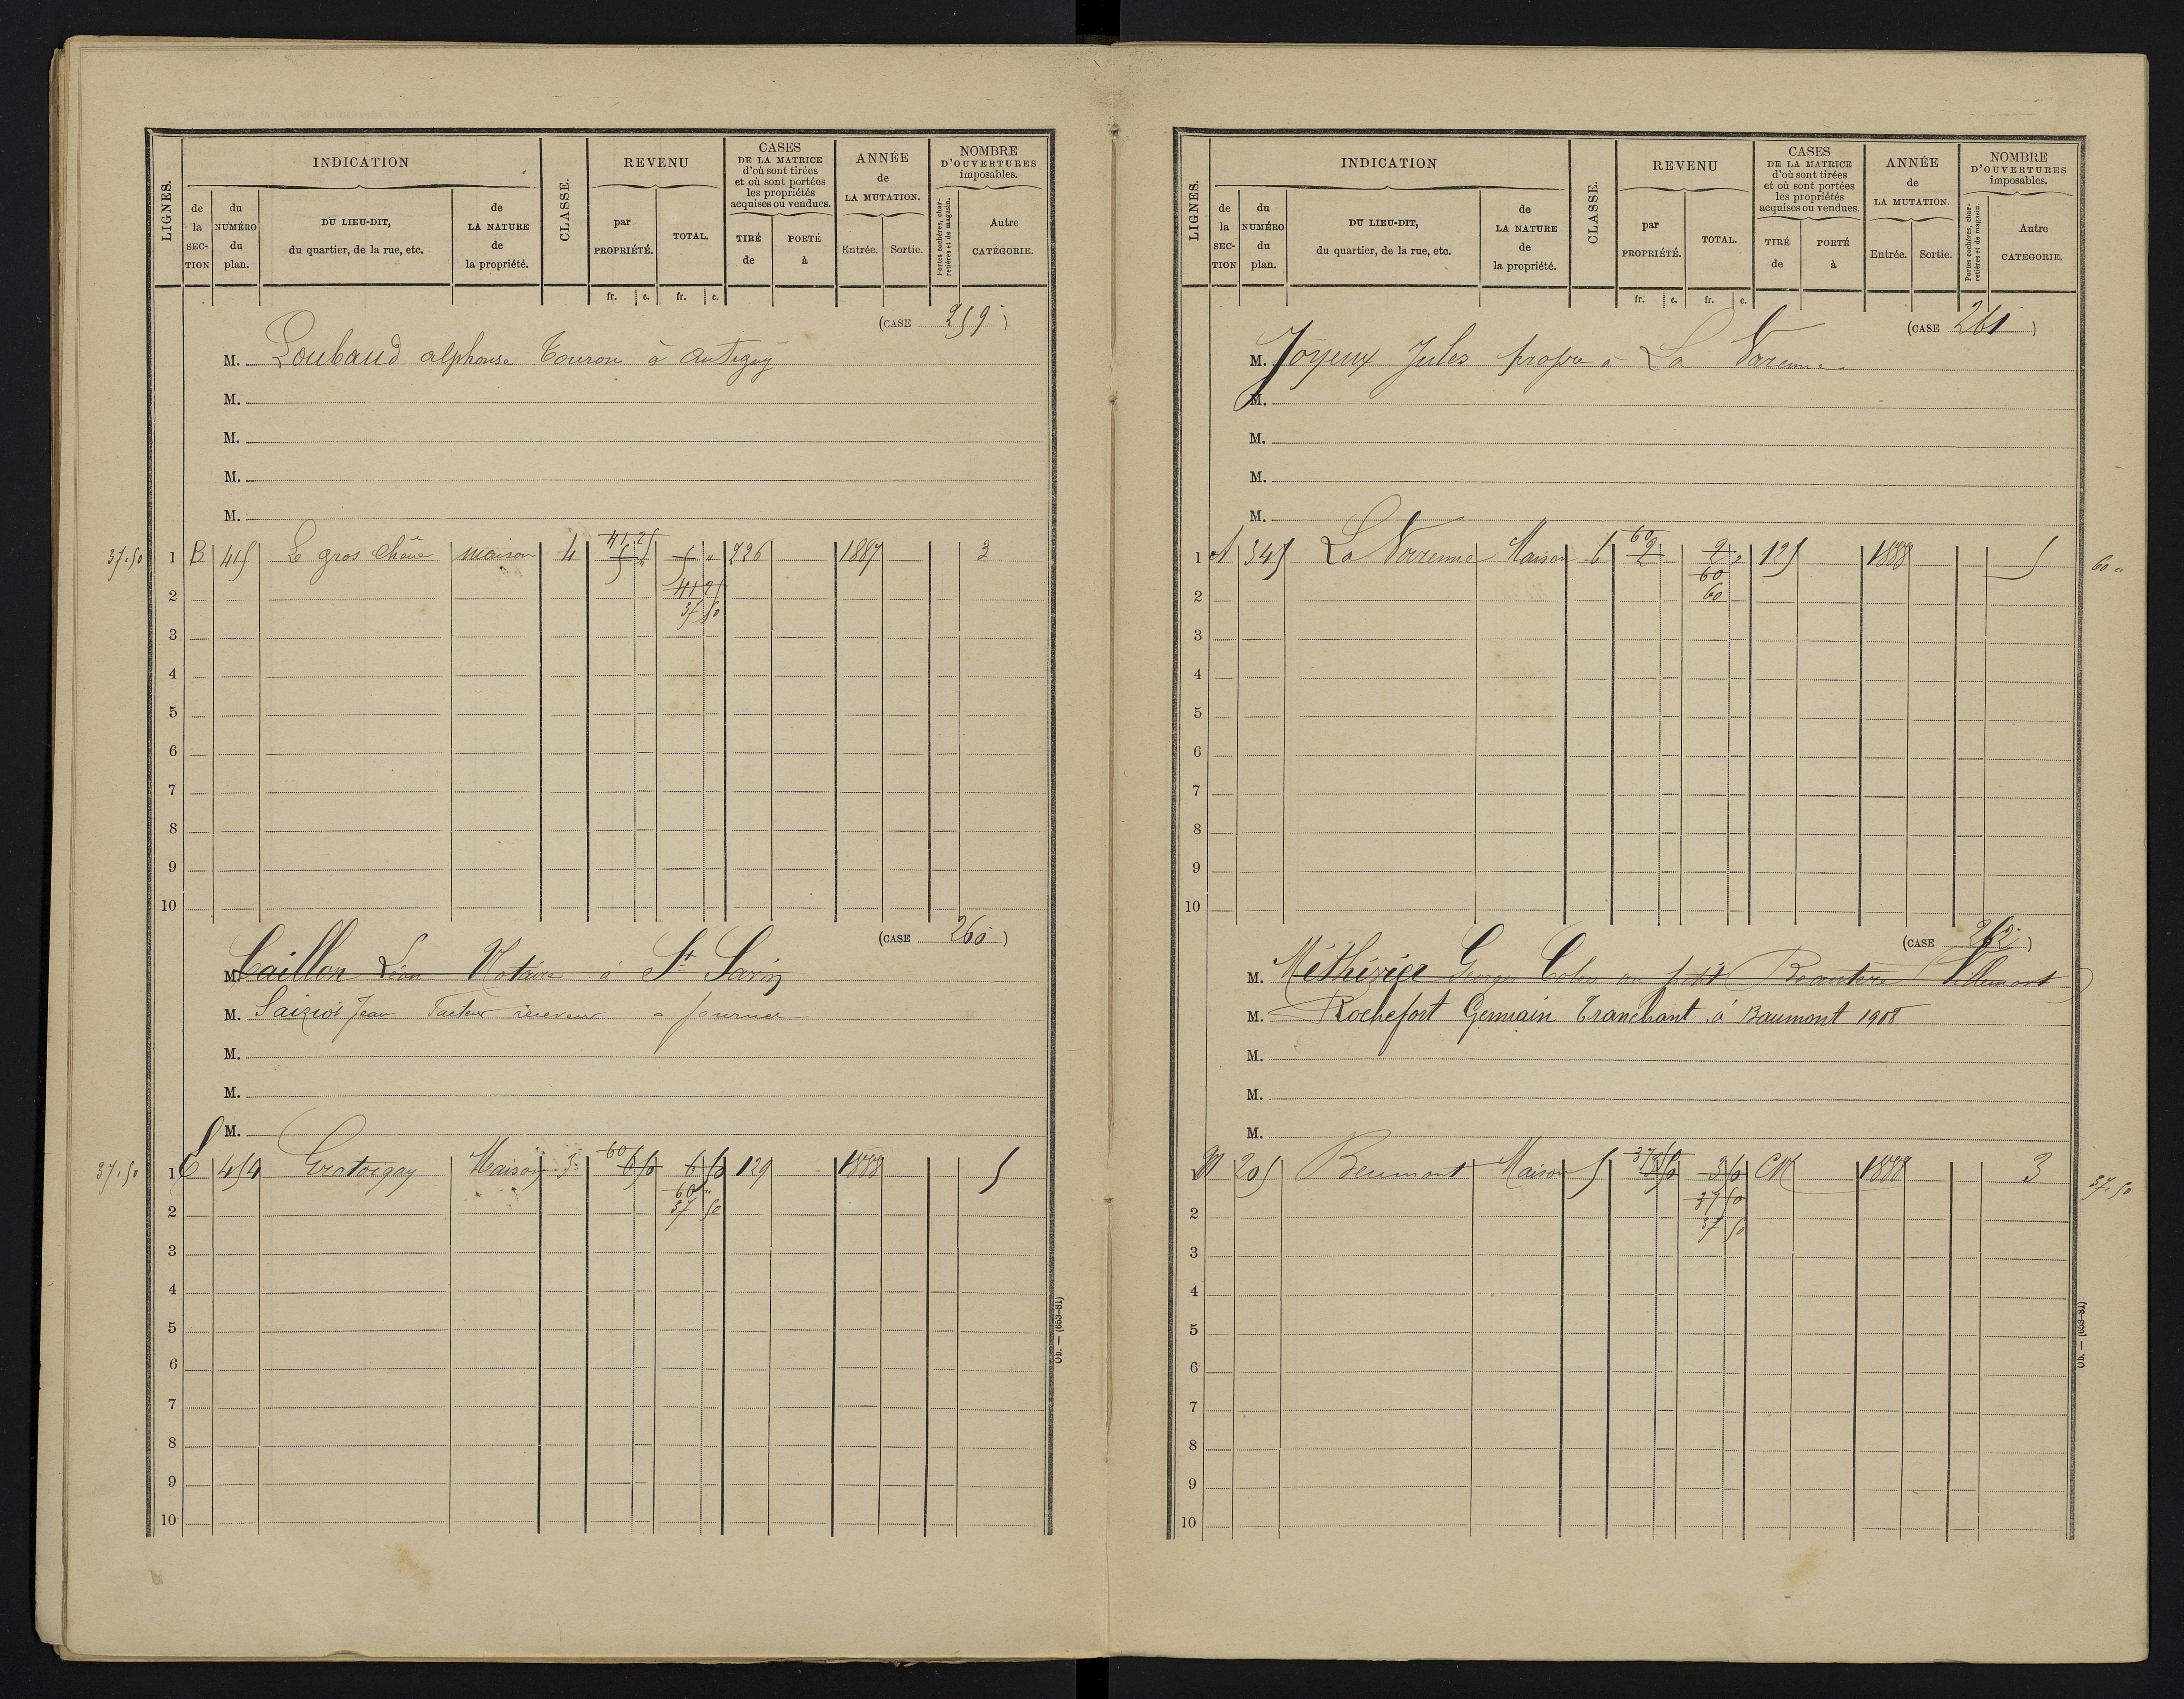 LIGNES.
INDICATION
de la SEC-TION
du NUMÉRO du plan.
DU LIEU-DIT, du quartier, de la rue, etc.
de LA NATURE de la propriété.
CLASSE.
REVENU
par PROPRIÉTÉ.
TOTAL.
CASES DE LA MATRICE d'où sont tirées et où sont portées les propriétés acquises ou vendues.
TIRÉ de
PORTÉ à
ANNÉE de LA MUTATION.
Entrée.
Sortie.
NOMBRE D'OUVERTURES imposables.
Portes cochères, charretières et de magasin.
Autre CATÉGORIE.
fr. c. fr. c.
(CASE 259)
M. Loubaud alphonse à Antigny
M.
M.
M.
M.
37.50 1 B 45 Le gros Chêne maison 4 41.25 5 " 5 " 226 1887 3
2 41 25
37 50
3
4
5
6
7
8
9
10
(CASE 260)
M. Caillon Léon Notaire à St Savin
M. Jean Facteur receveur a
M.
M.
M.
37.50 1 C 454 Gratoigay Maison 5 60 6 50 6 50 129 1888 5
60 "
2 37 50
3
4
5
6
7
8
9
10
Ob. — (653-81)
LIGNES.
INDICATION
de la SEC-TION
du NUMÉRO du plan.
DU LIEU-DIT, du quartier, de la rue, etc.
de LA NATURE de la propriété.
CLASSE.
REVENU
par PROPRIÉTÉ.
TOTAL.
CASES DE LA MATRICE d'où sont tirées et où sont portées les propriétés acquises ou vendues.
TIRÉ de
PORTÉ à
ANNÉE de LA MUTATION.
Entrée.
Sortie.
NOMBRE D'OUVERTURES imposables.
Portes cochères, charretières et de magasin.
Autre CATÉGORIE.
fr. c. fr. c.
(CASE 261)
M. Joyeux Jules propre à La Varenne
M.
M.
M.
M.
1 A 345 La Varenne Maison 6 60 2 2 125 1888 5 60 "
60
2 60
3
4
5
6
7
8
9
10
(CASE 262)
M. Méthivier Georges Colon au petit Villemort
M. Rochefort Germain Tranchant à Baumont 1908
M.
M.
M.
1 205 Beumont Maison 5 37 50 3 50 3 50 CN 1888 3 37.50
37 50
2 37 50
3
4
5
6
7
8
9
10
Ob. — (653-81)